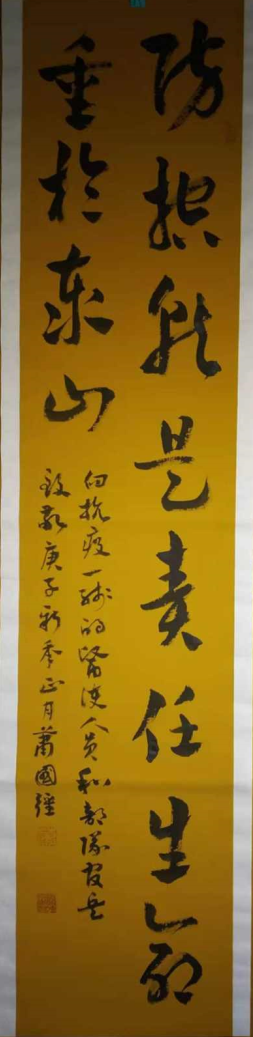 防控就是责任生命
重於泰山
向抗疫一线的醫护人员和部隊官兵
致敬庚子新季正月萧國强